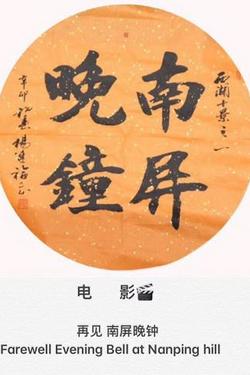 西湖十景之一
南屏
晚鐘
辛卯
电 影🎬
再见 南屏晚钟
Farewell Evening Bell at Nanping hill